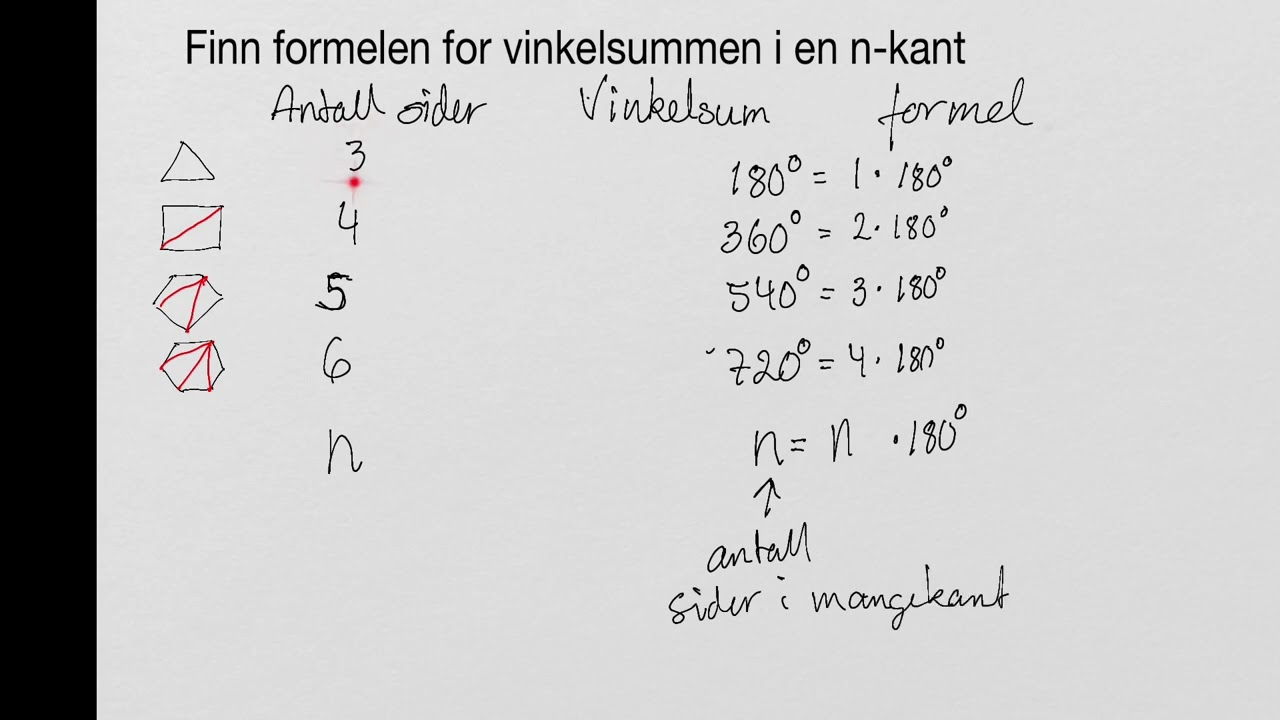 Finn formelen for vinkelsummen i en n-kant
Antall sider Vinkelsum formel
3 180° = 1 · 180°
4 360° = 2 · 180°
5 540° = 3 · 180°
6 720° = 4 · 180°
n n = n · 180°
antall
sider i mangekant